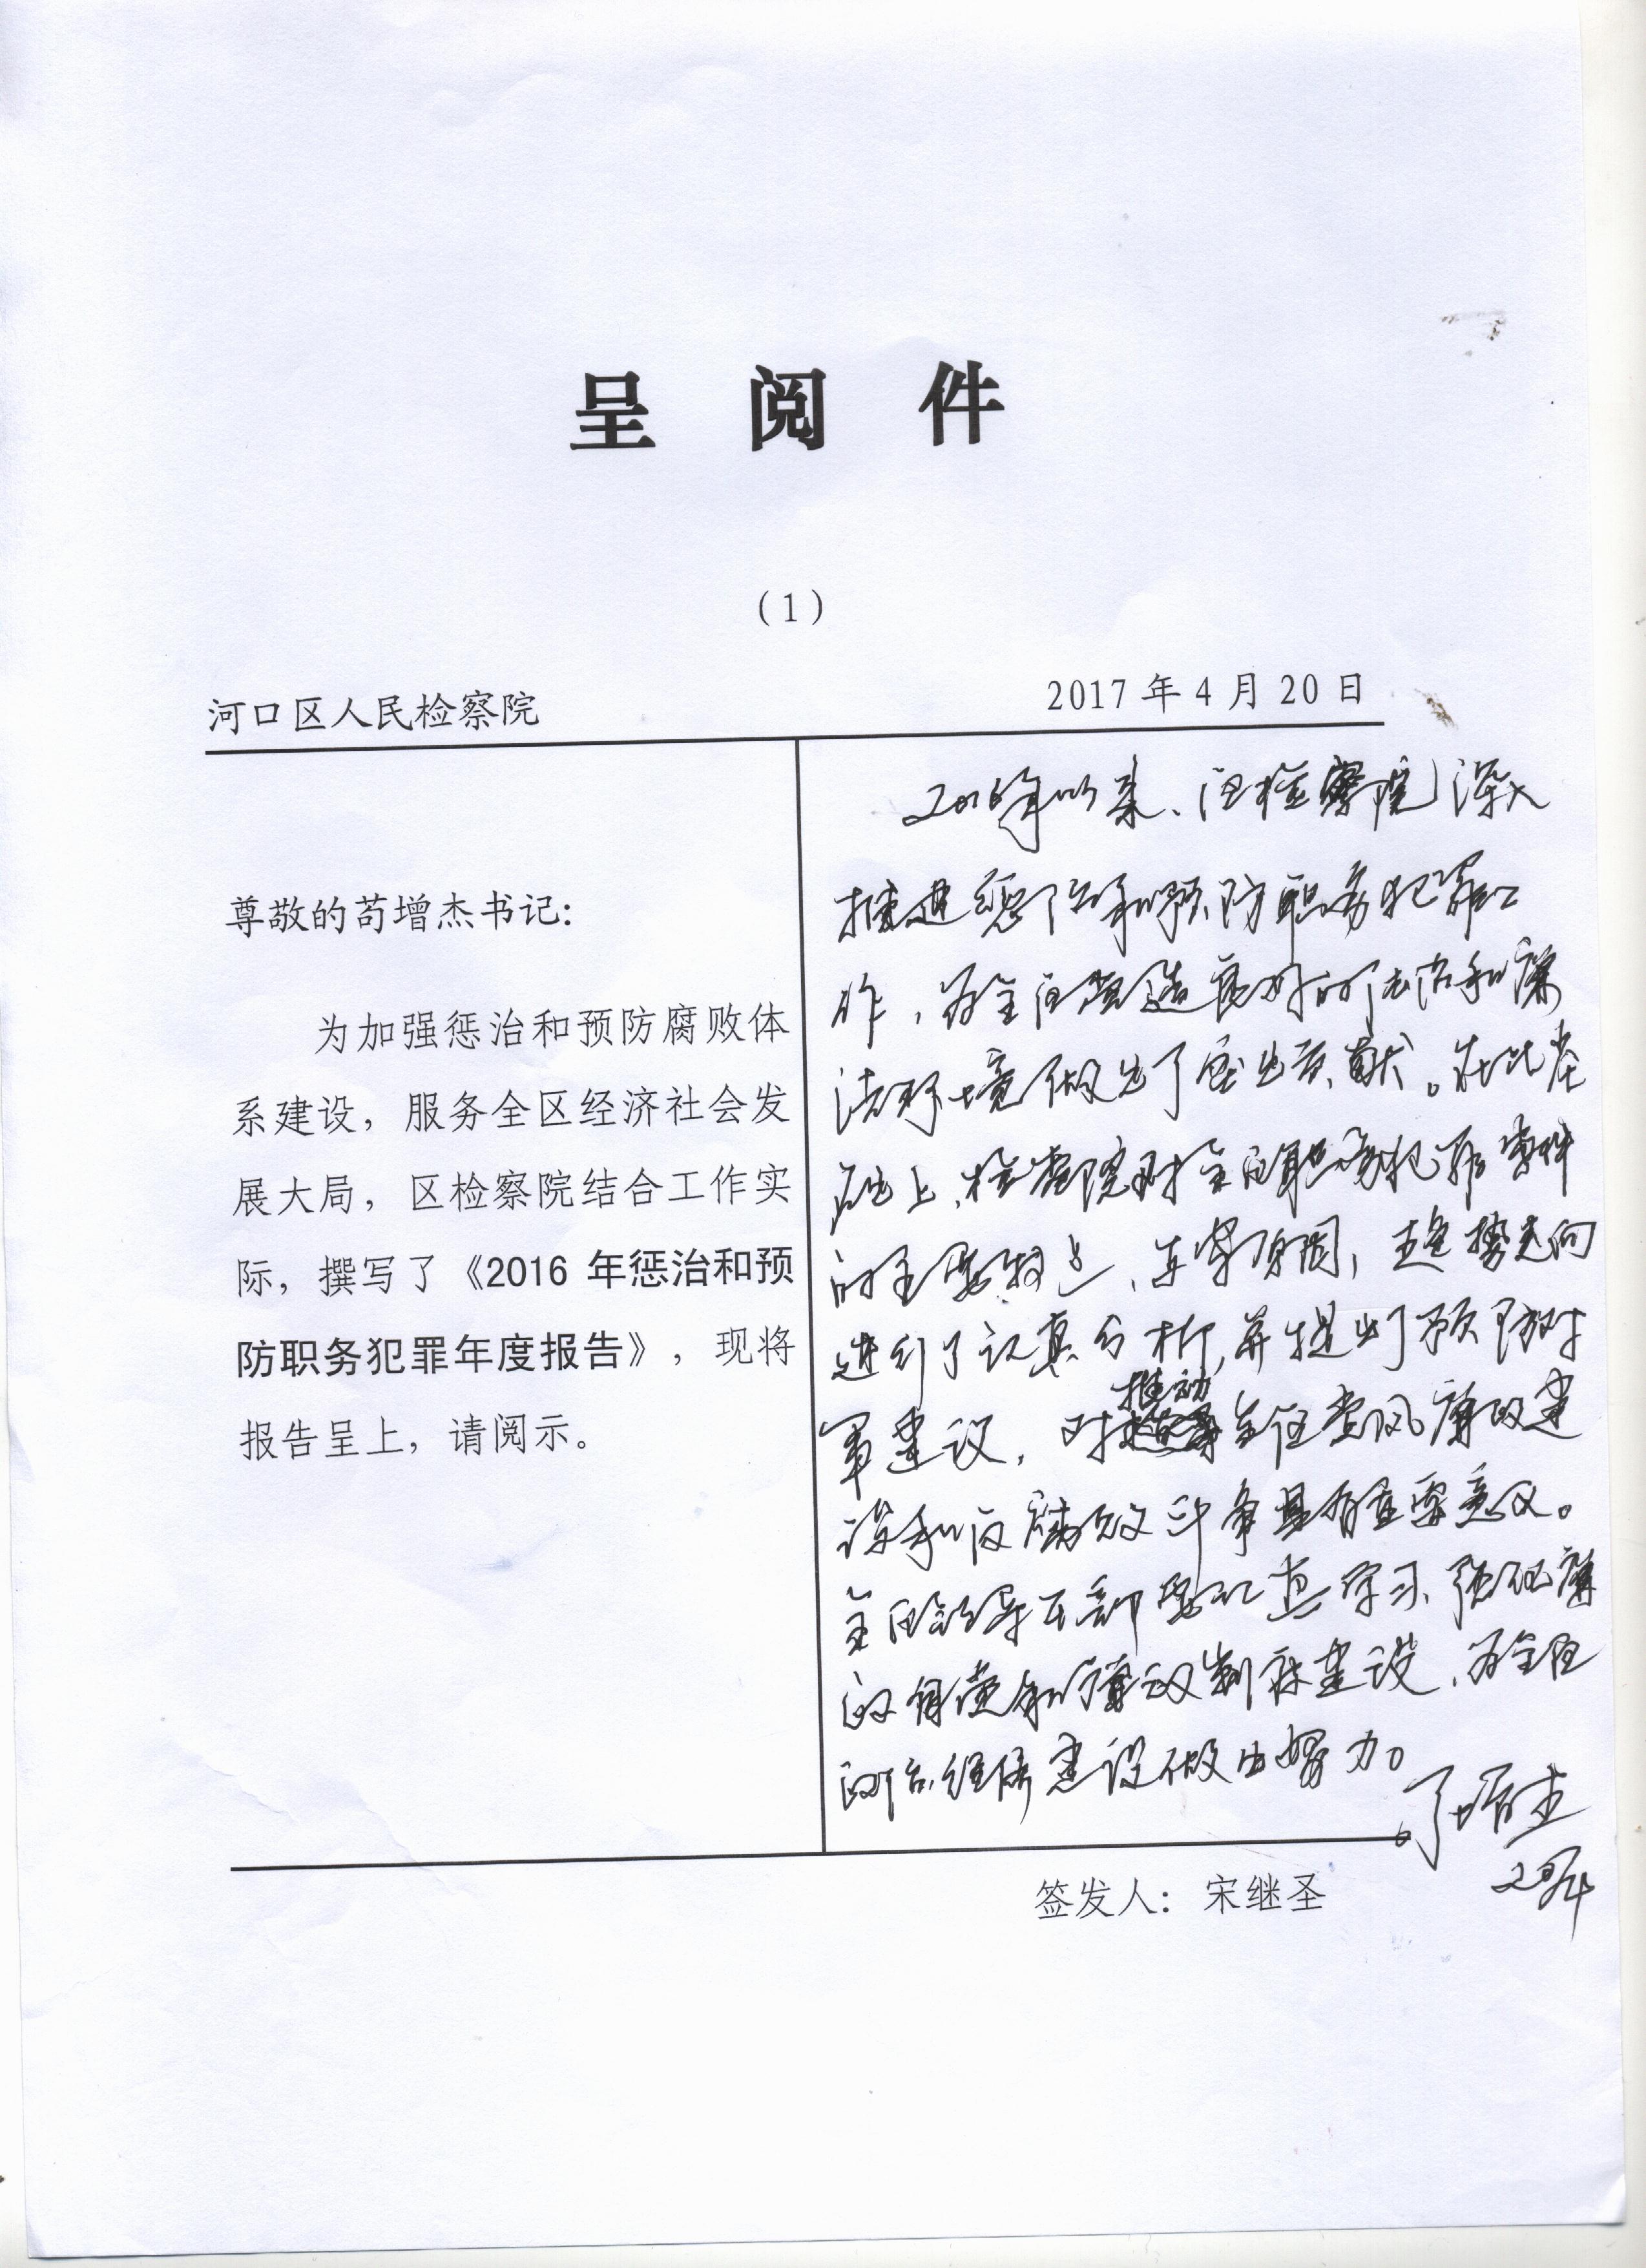 呈 阅 件
（1）
河口区人民检察院
2017 年 4 月 20 日
尊敬的苟增杰书记：
为加强惩治和预防腐败体
系建设，服务全区经济社会发
展大局，区检察院结合工作实
际，撰写了《2016 年惩治和预
防职务犯罪年度报告》，现将
报告呈上，请阅示。
2016年以来、区检察院深入
推进惩治和预防职务犯罪工
作，为全区营造良好的法治和廉
洁环境做出了突出贡献。在此基
础上、检察院对全区职务犯罪案件
的主要特点、原因，趋势走向
进行了认真分析，并提出了预防对
策建议，对推动全区党风廉政建
设和反腐败斗争具有重要意义。
全区各级领导干部要认真学习、强化廉
政和廉政制度建设、为全区
政治经济建设做出努力。
签发人： 宋继圣